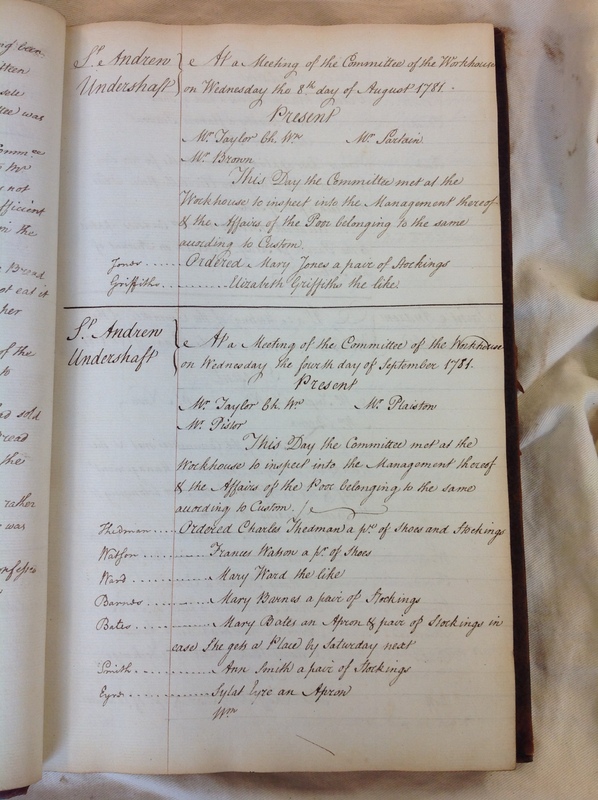 St. Andrew
Undershaft
At a Meeting of the Committee of the Workhouse
on Wednesday the 8th day of August 1781.
Present
Mr. Taylor Ch. Wn. Mr. Sartain
Mr. Brown
This Day the Committee met at the
Workhouse to inspect into the Management thereof
& the Affairs of the Poor belonging to the same
according to Custom.
Jones ...... Ordered Mary Jones a pair of Stockings
Griffiths ........... Elizabeth Griffiths the like
St. Andrew
Undershaft
At a Meeting of the Committee of the Workhouse
on Wednesday the fourth day of September 1781.
Present
Mr. Taylor Ch. Wn. Mr. Plaistow
Mr. Pistor
This Day the Committee met at the
Workhouse to inspect into the Management thereof
& the Affairs of the Poor belonging to the same
according to Custom.
Thedman .... Ordered Charles Thedman a pr. of Shoes and Stockings
Watson ......... Frances Watson a pr. of Shoes
Ward ........... Mary Ward the like
Barnes .......... Mary Barnes a pair of Stockings
Bates ........... Mary Bates an Apron & pair of Stockings in
case She gets a Place by Saturday next
Smith ........... Ann Smith a pair of Stockings
Eyre ............ Eyre an Apron
Wm
ficient
the
Bread
of the
to
sold
the
rather
was